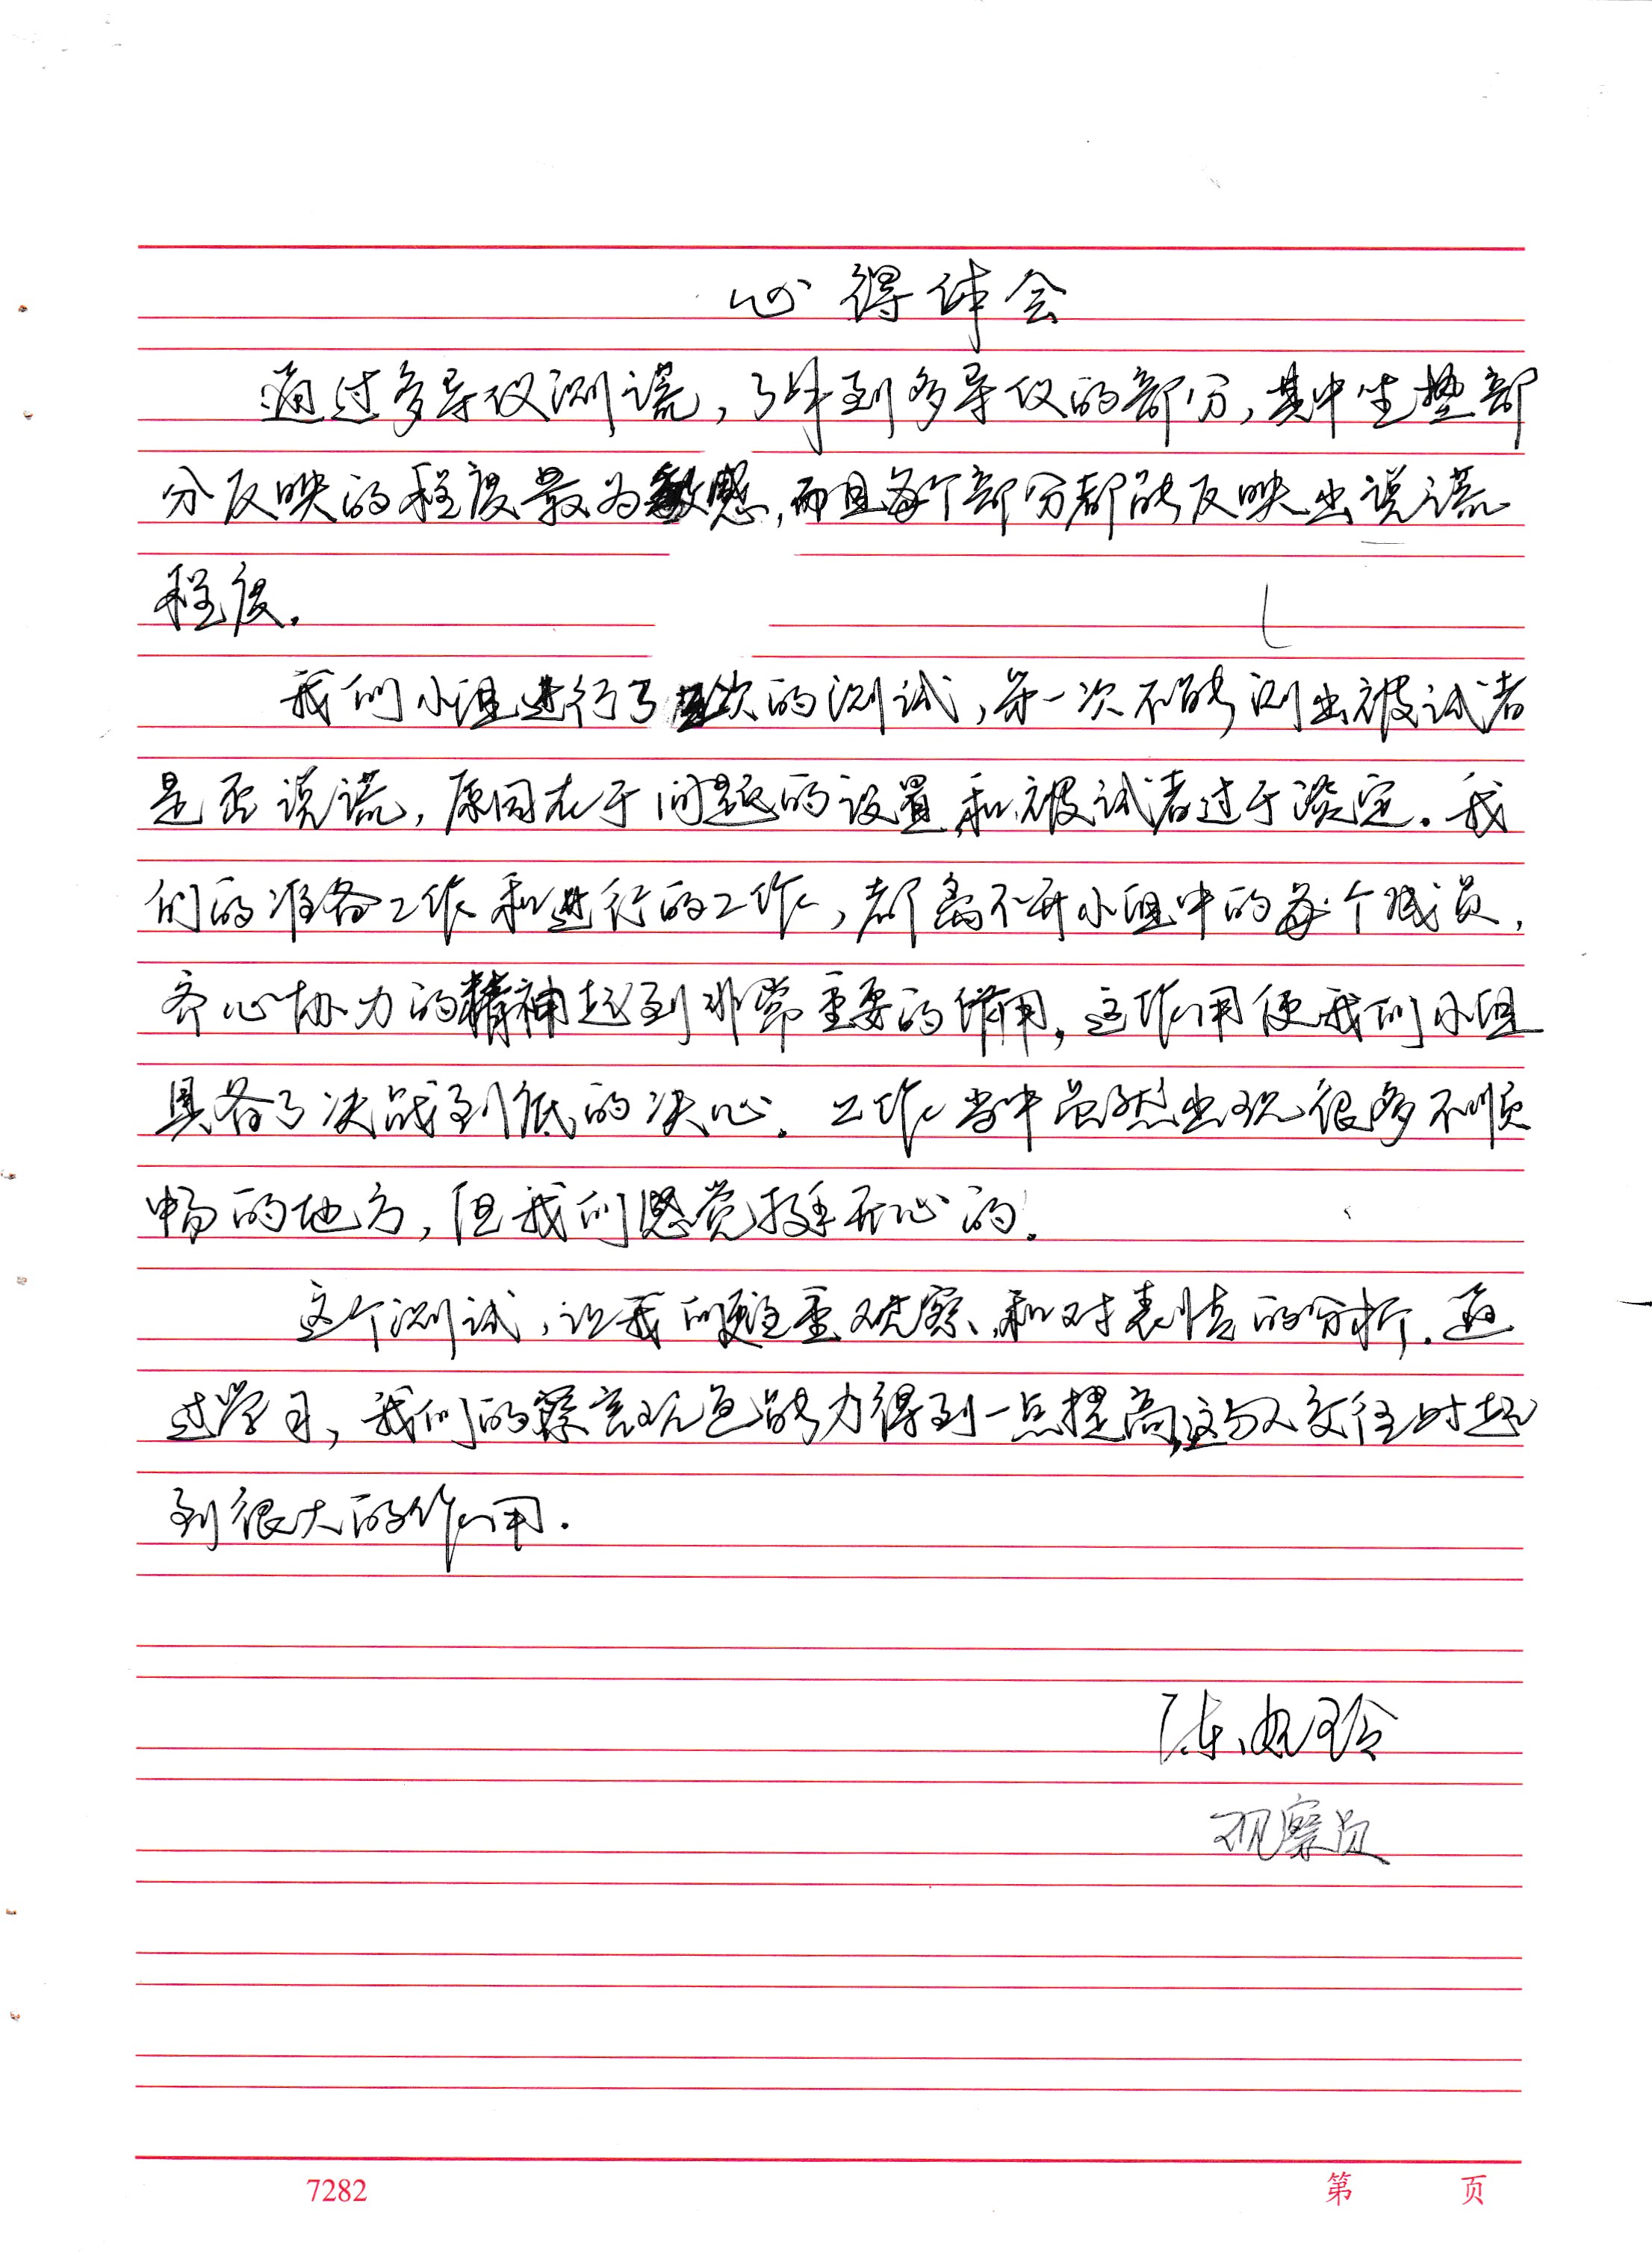 心得体会
通过多导仪测谎，了解到多导仪的部分，其中坐垫部
分反映的程度最为敏感，而且每个部分都能反映出说谎
程度。
我们小组进行了次的测试，第一次不能测出被试者
是否说谎，原因在于问题的设置和被试者过于淡定。我
们的准备工作和进行的工作，都离不开小组中的每个成员，
齐心协力的精神起到非常重要的作用，这作用使我们小组
具备了决战到低的决心。工作当中虽然出现很多不顺
畅的地方，但我们感觉挺开心的。
这个测试，让我们更注重观察、和对表情的分析。通
过学习，我们的察言观色能力得到一点提高，这与人交往时起
到很大的作用。
陈玲
观察员
7282
第 页